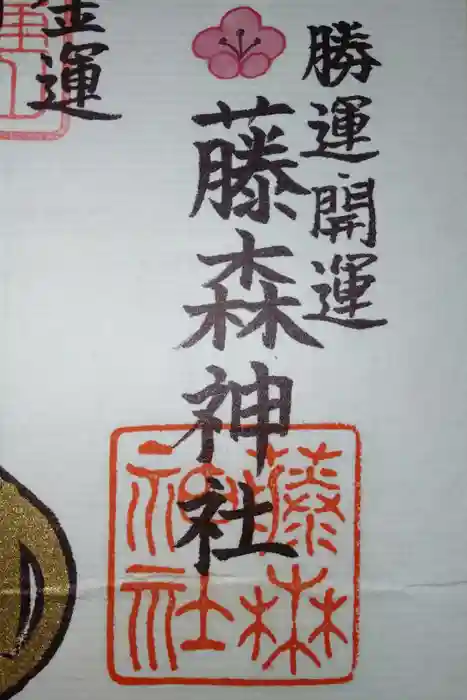 勝運開運
藤森神社
藤森神社
金運